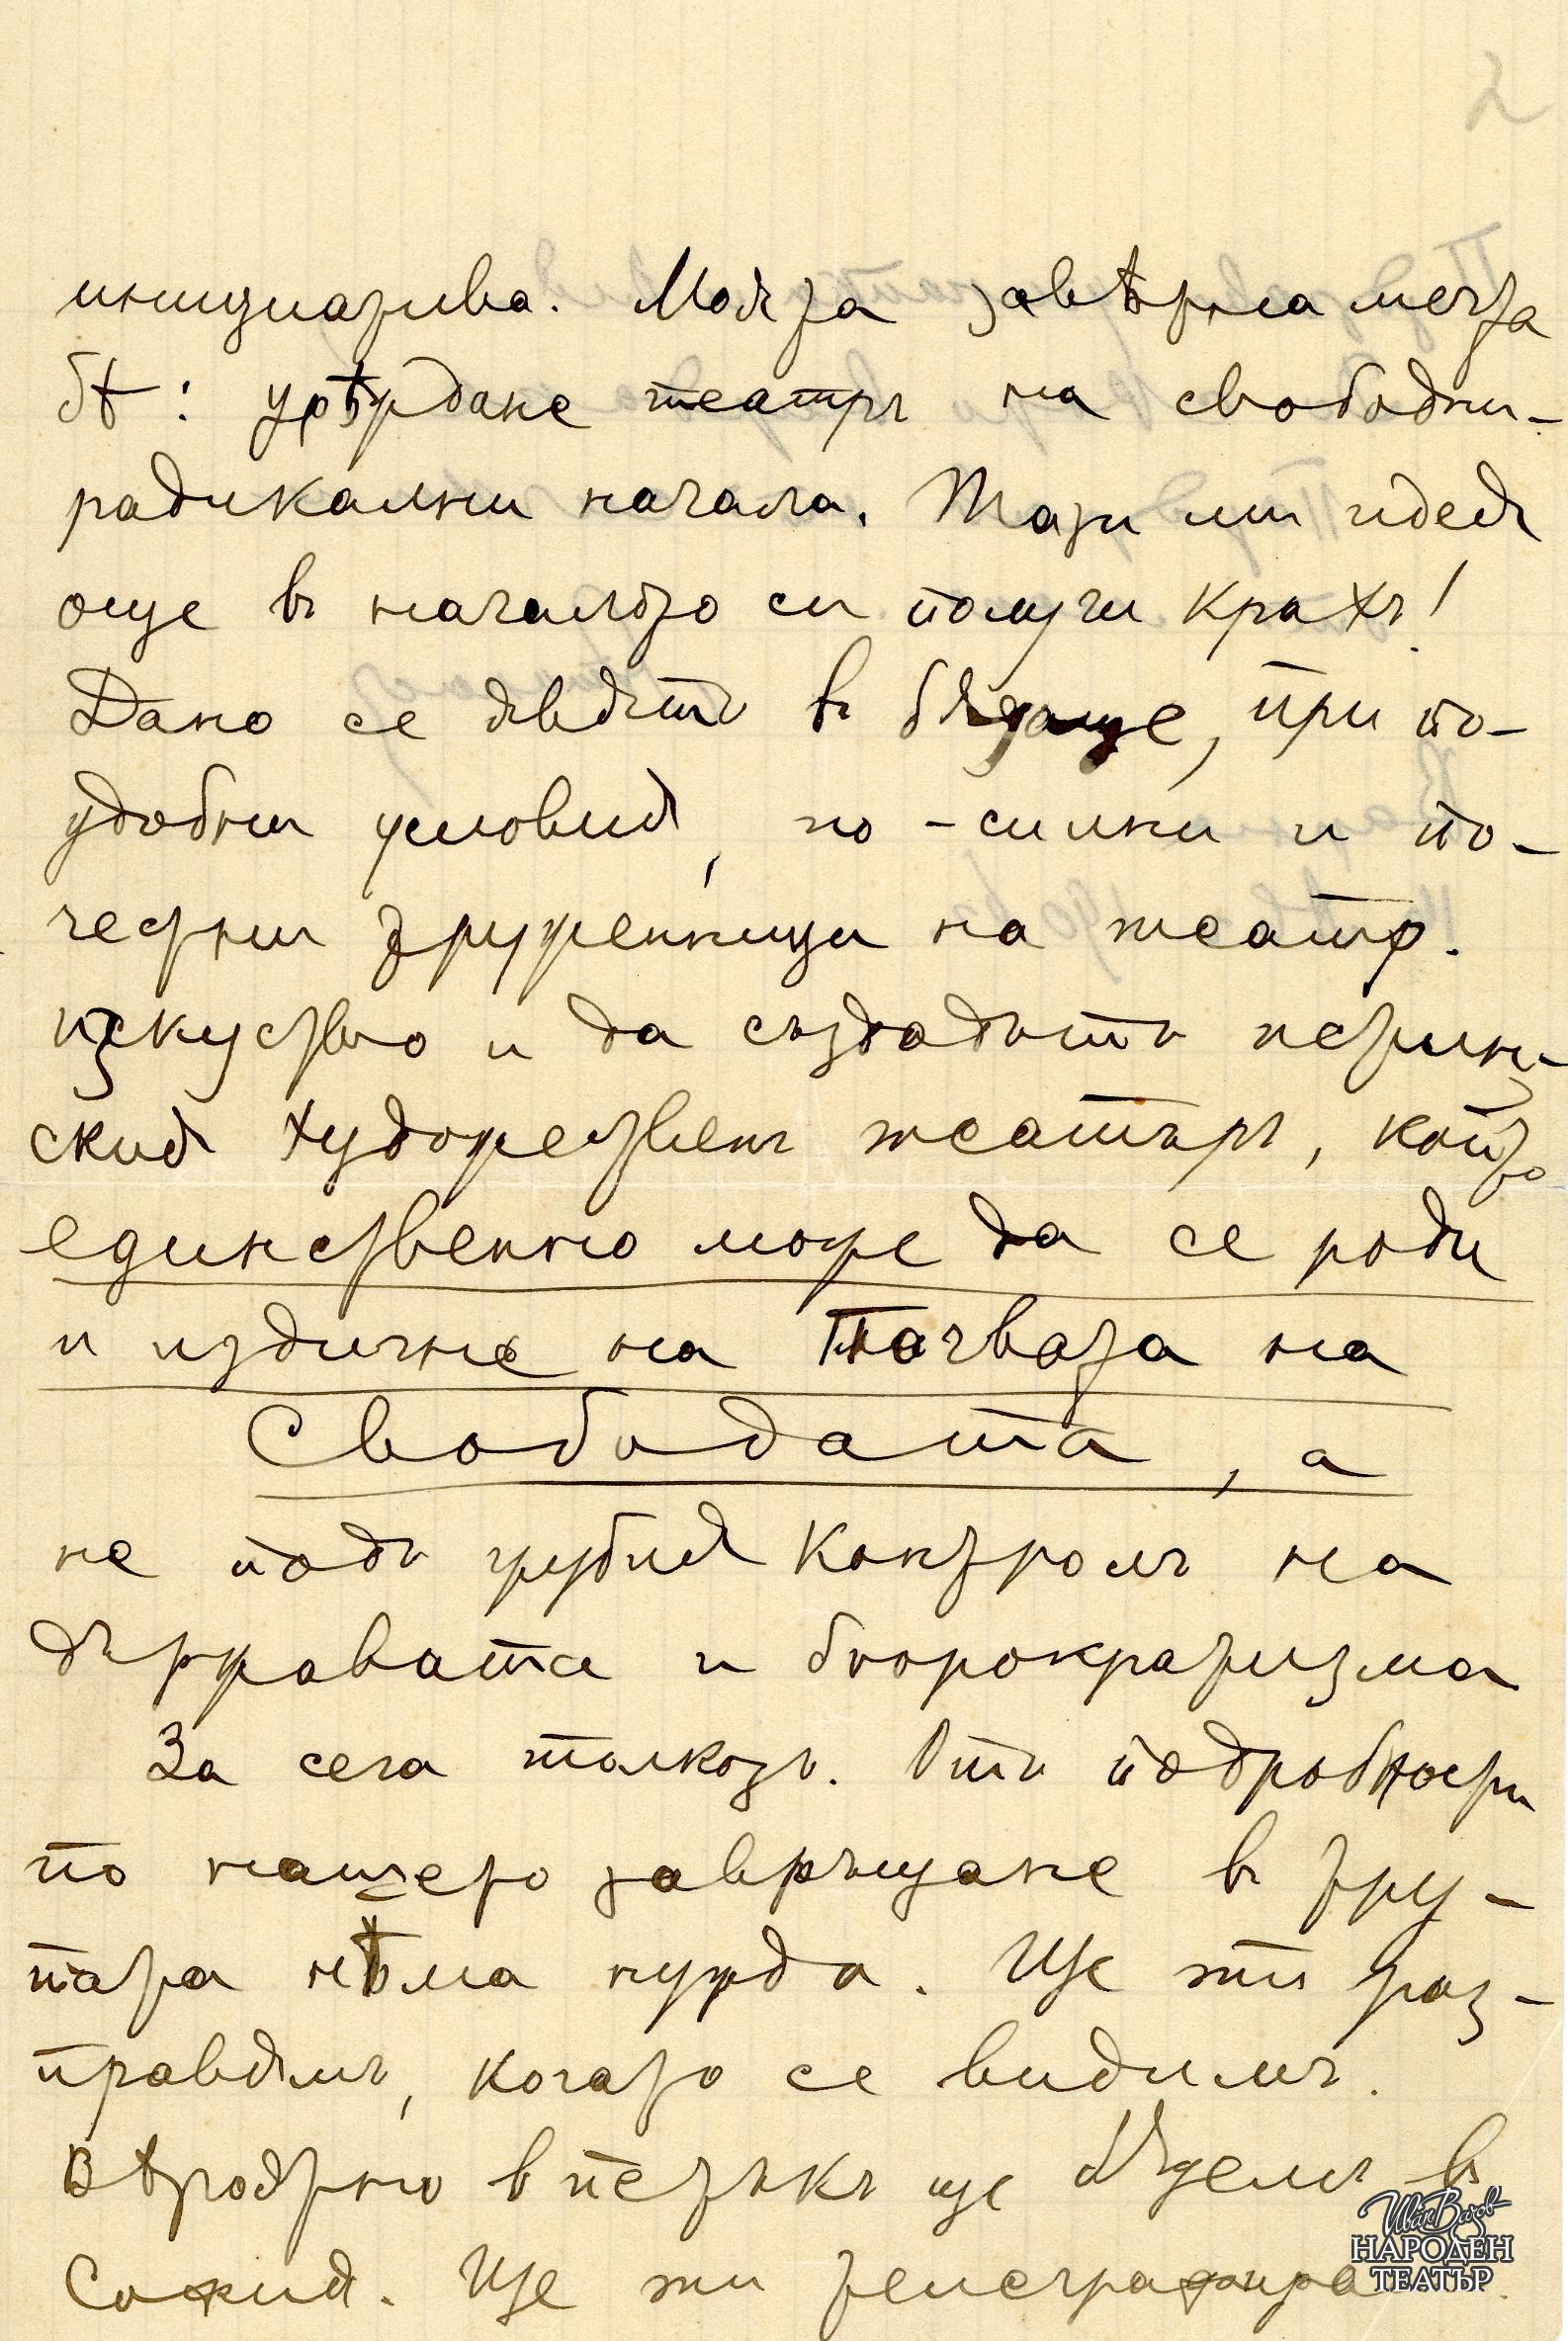 2
инициатива. Моята завѣтна мечта
бѣ: утвърдане театръ на свободни-
радикални начала. Тази ми идея
още въ началото си получи крахъ!
Дано се явятъ въ бѫдаще, при по-
удобни условия, по-силни и по-
честни труженници на театр.
изкуство и да създадътъ истин-
ския художественъ театъръ, който
единственно може да се роди
и издигне на почвата на
Свободата, а
не подъ грубия контролъ на
държавата и бюрократизма
За сега толкозъ. Отъ подробности
по нашето завръщане въ тру-
пата нѣма нужда. Ще ти раз-
правямъ, когато се видимъ.
Вѣроятно въ петъкъ ще бѫдемъ въ
София. Ще ти телеграфира
Иван Вазов
НАРОДЕН
ТЕАТЪР